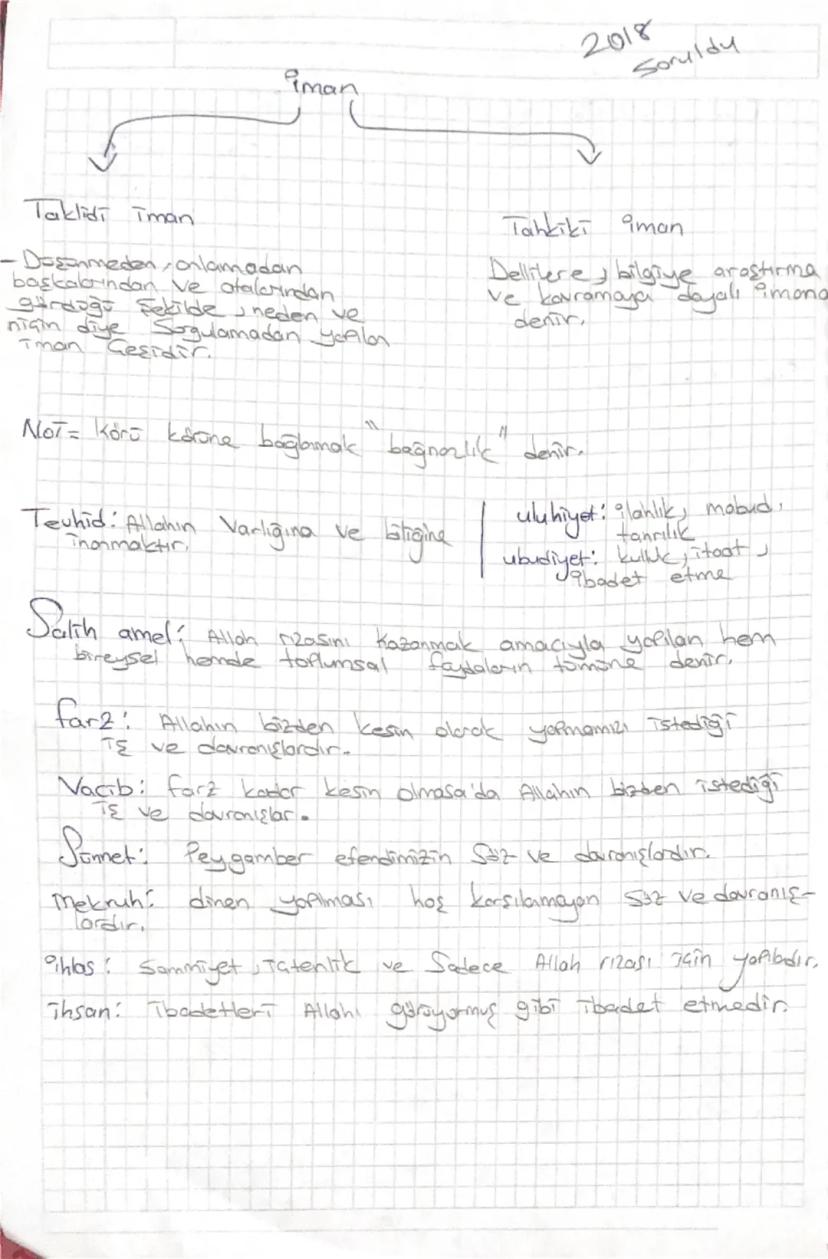 2018
Soruldu
iman
Taklidi iman
Tahkiki iman
- Düşünmeden, anlamadan
başkalarından ve atalarından
gördüğü şekilde, neden ve
niçin diye Sogulamadan yapılan
iman Çeşidir.
Dellilere, bilgiye araştırma
ve kavramaya dayalı imana
denir.
NOT= Körü körüne bağlamak "bağnazlık" denir.
Tevhid: Allahın Varlığına ve birliğine
inanmaktır.
uluhiyet: ilahlık, mabud,
tanrılık
ubudiyet: kulluk, itaat,
ibadet etme
Salih amel: Allah rızasını kazanmak amacıyla yapılan hem
bireysel hemde toplumsal faydaların tümüne denir.
farz: Allahın bizden kesin olarak yapmamızı istediği
iş ve davranışlardır.
Vacib: farz kadar kesin olmasa'da Allahın bizden istediği
iş ve davranışlar.
Sünnet: Peygamber efendimizin Söz ve davranışlardır.
mekruh: dinen yapılması hoş karşılamayan söz ve davranış-
lardır.
ihlas: Sammiyet, içtenlik ve Sadece Allah rızası için yapıladır.
ihsan: ibadetleri Allahı görüyormuş gibi ibadet etmedir.